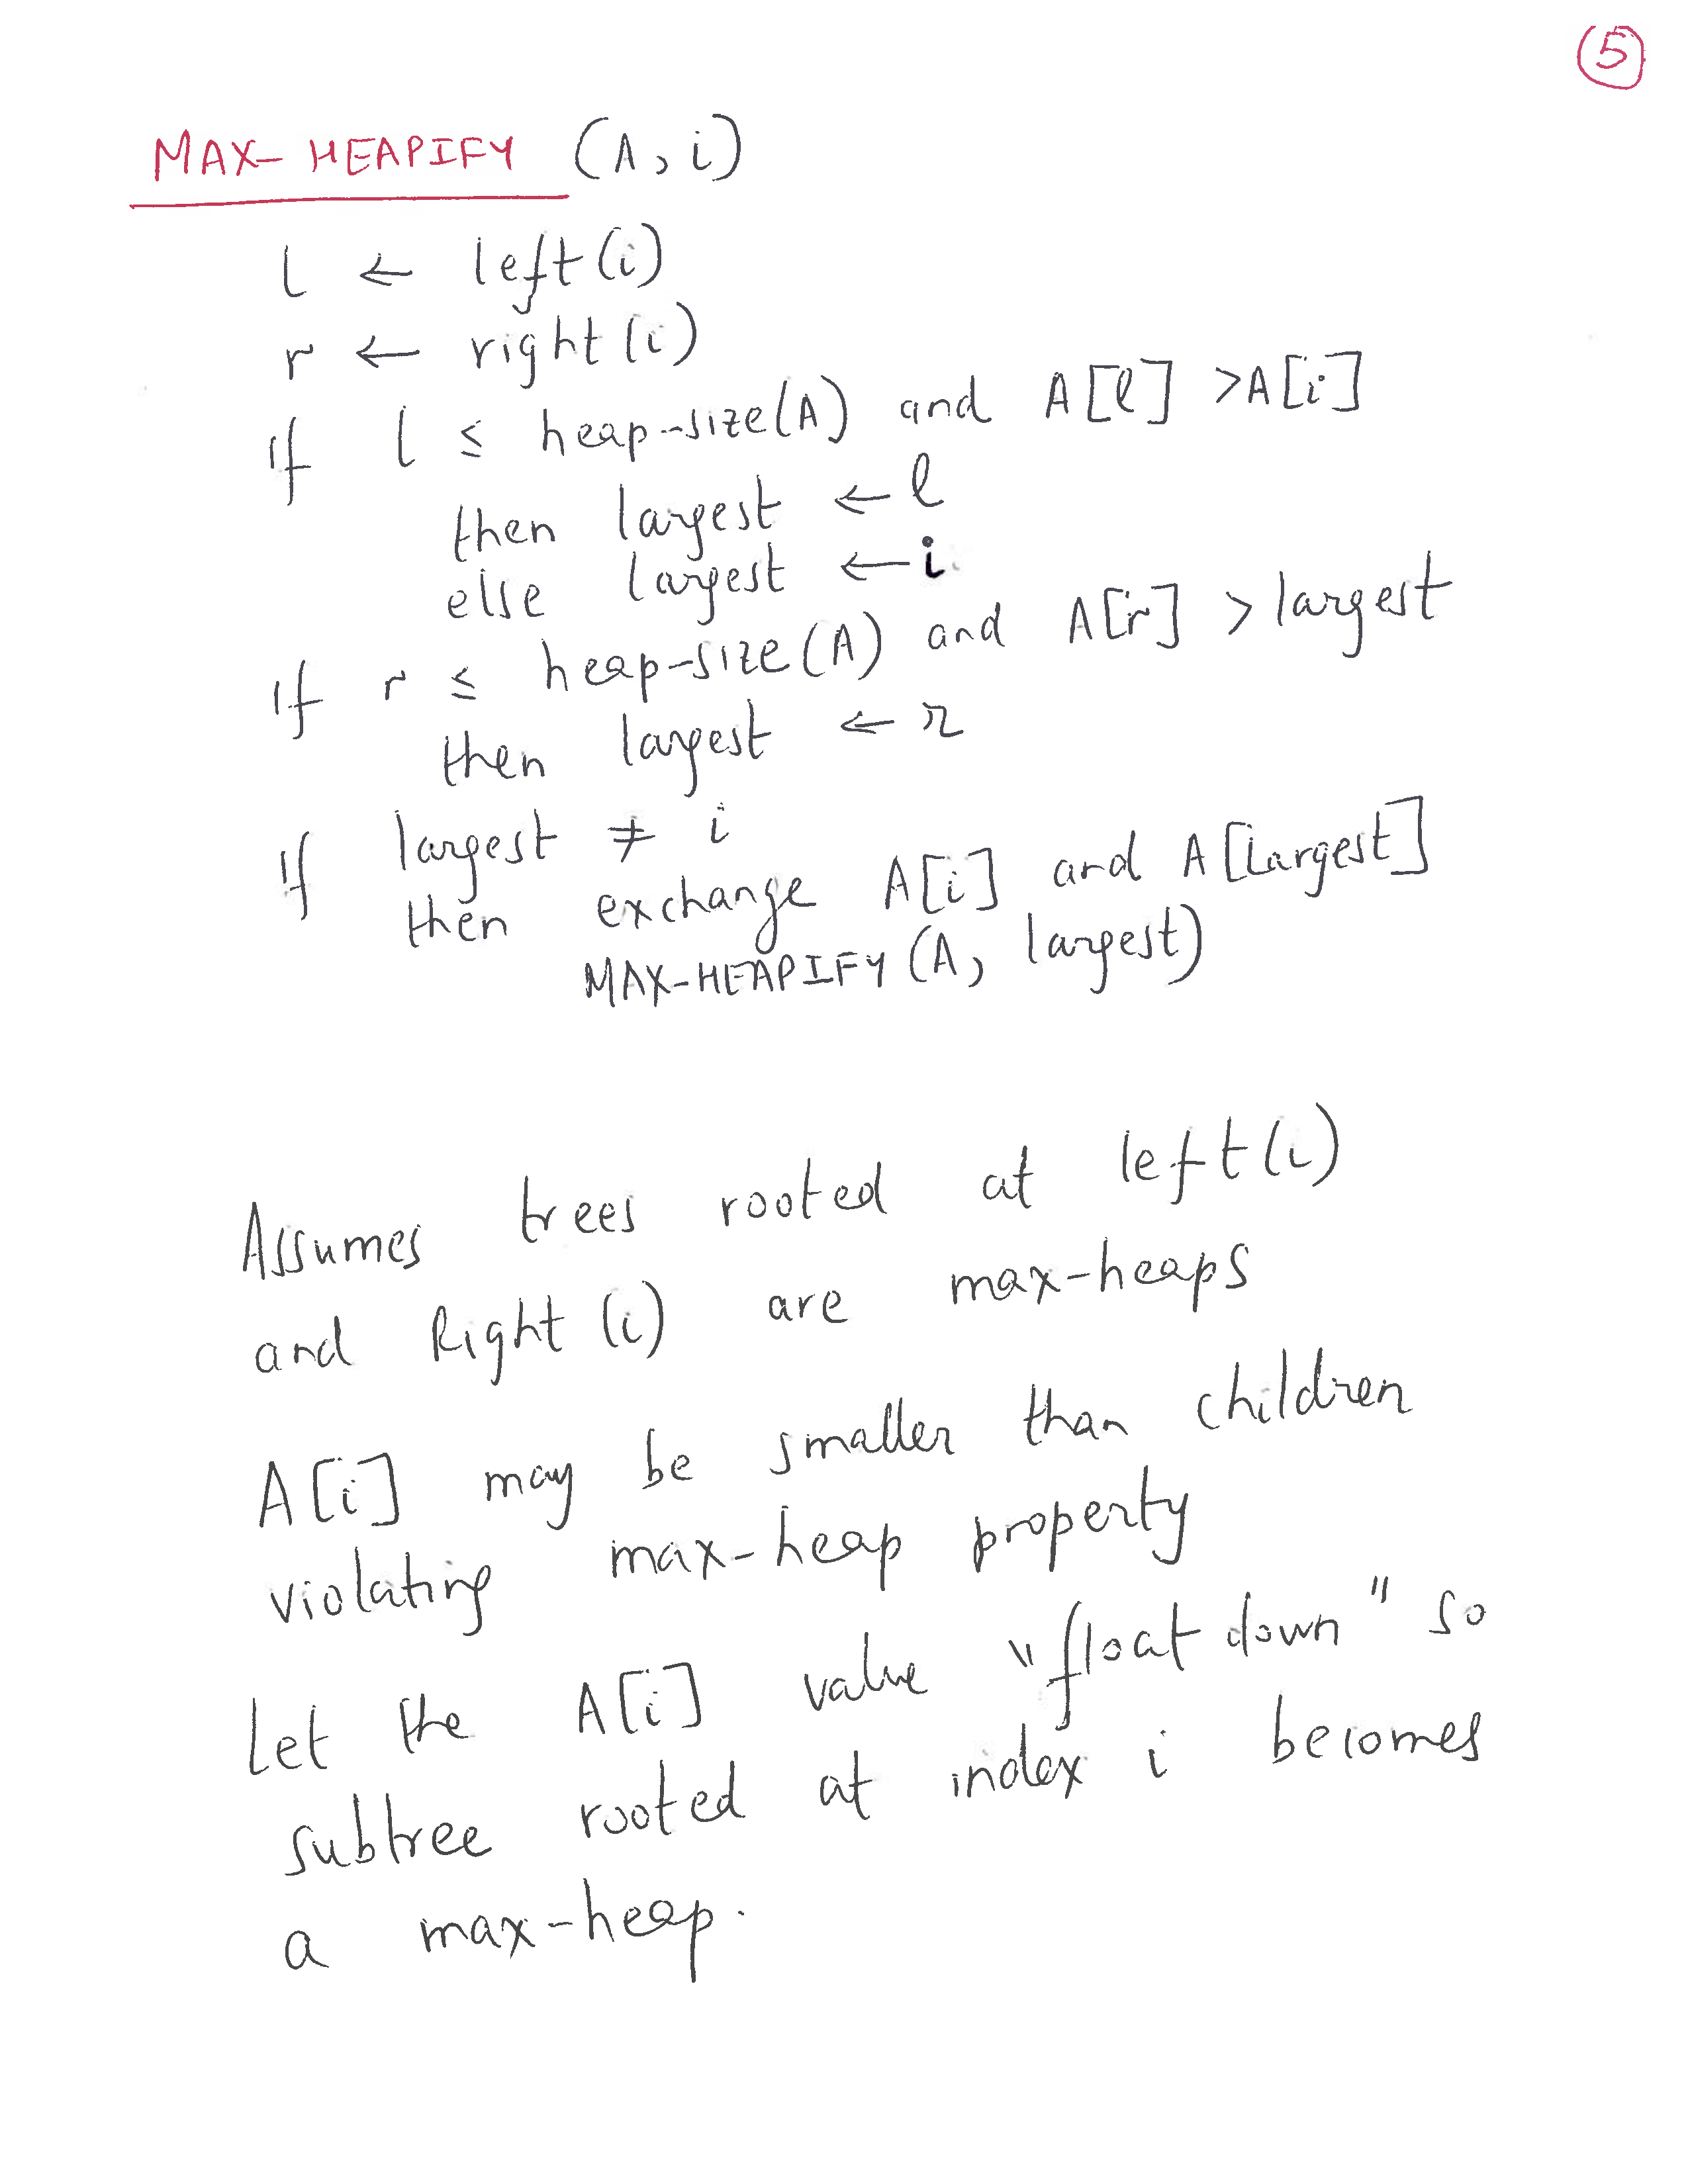 5
MAX-HEAPIFY (A, i)
l ← left(i)
r ← right(i)
if l ≤ heap-size(A) and A[l] > A[i]
then largest ← l
else largest ← i
if r ≤ heap-size(A) and A[r] > largest
then largest ← r
if largest ≠ i
then exchange A[i] and A[largest]
MAX-HEAPIFY (A, largest)
Assumes trees rooted at left(i)
and Right(i) are max-heaps
A[i] may be smaller than children
violating max-heap property
Let the A[i] value "float down" so
subtree rooted at index i becomes
a max-heap.